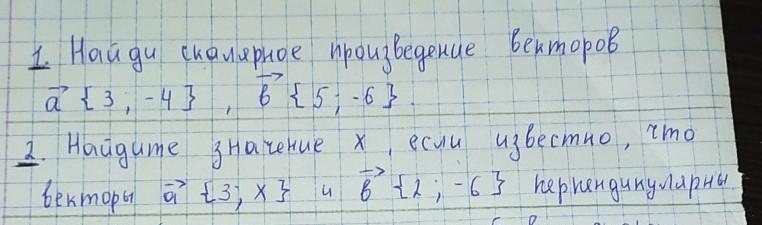 1. Найди скалярное произведение векторов
a⃗ {3; -4}, b⃗ {5; -6}.
2. Найдите значение x, если известно, что
векторы a⃗ {3; x} и b⃗ {2; -6} перпендикулярны.